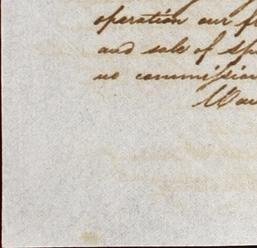 operation our f
and sale of sp
no commission